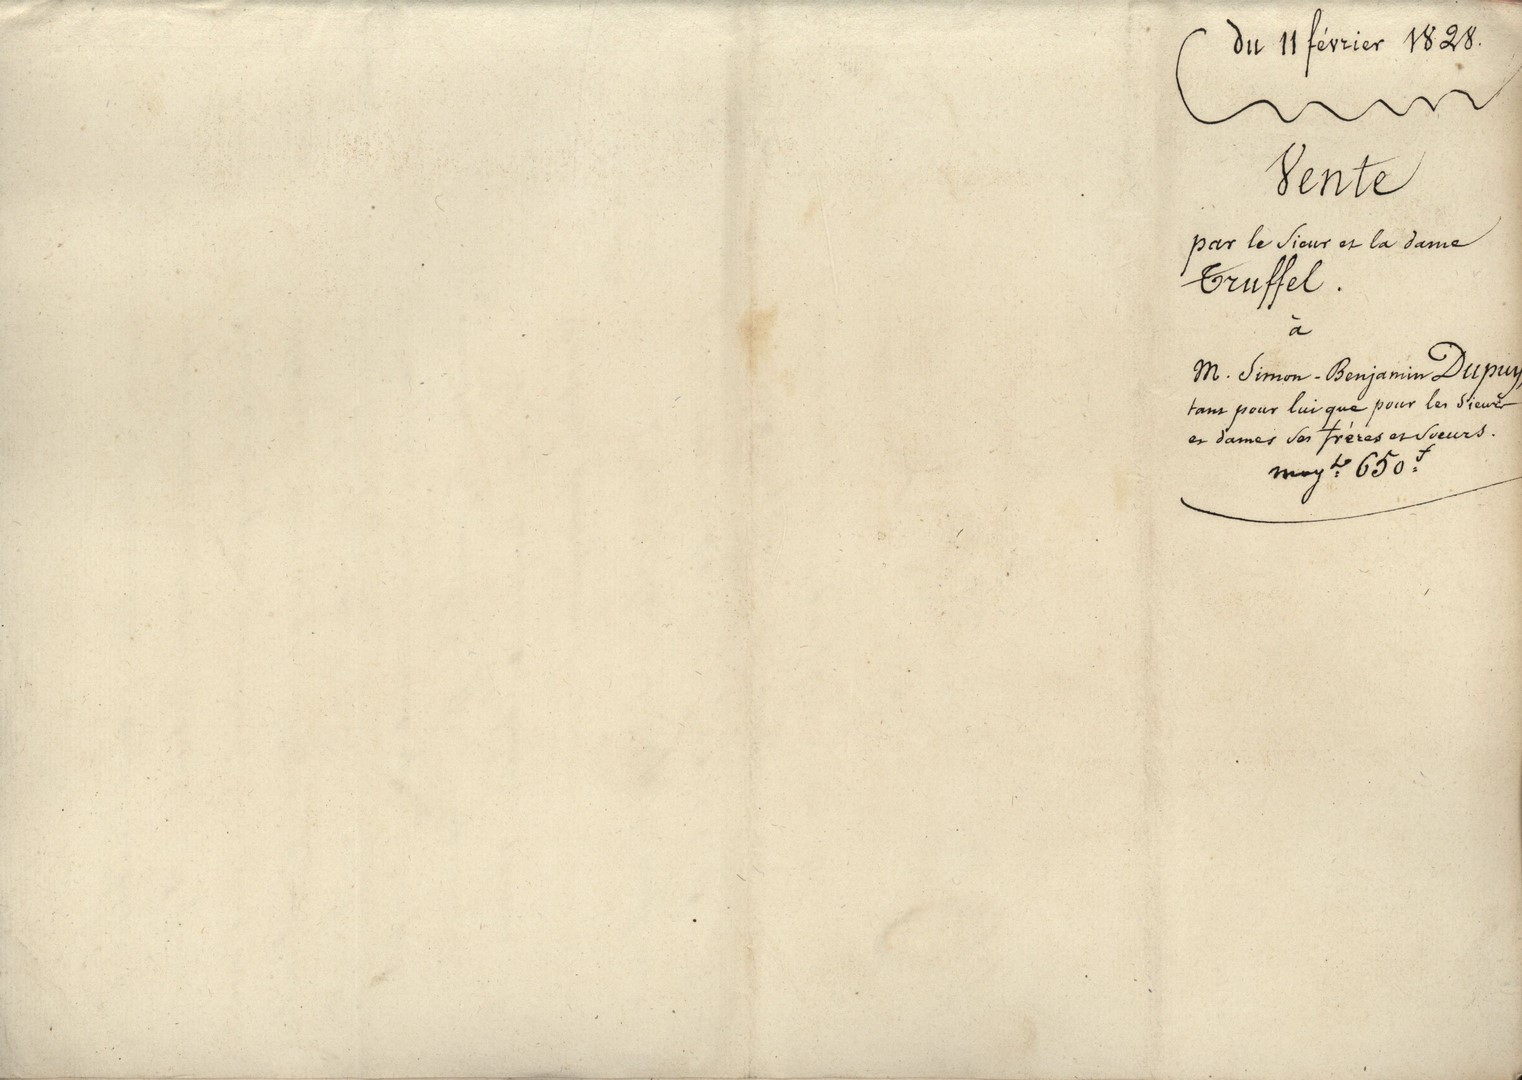 du 11 février 1828.
Vente
par le sieur et la dame
Truffel.
à
M. Simon-Benjamin Dupuy,
tant pour lui que pour les sieurs
et dames ses frères et soeurs.
moyt. 650.f